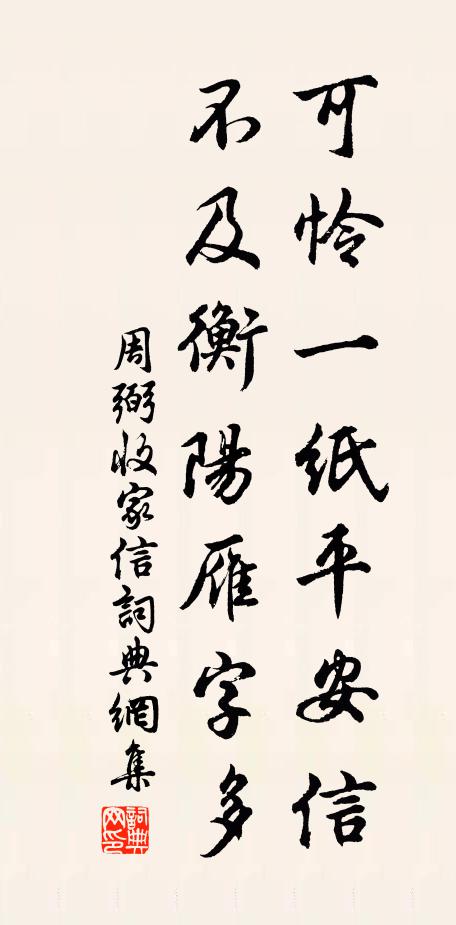 可怜一纸平安信
不及衡陽雁字多
周弼收家信詞典網集
詞典网印